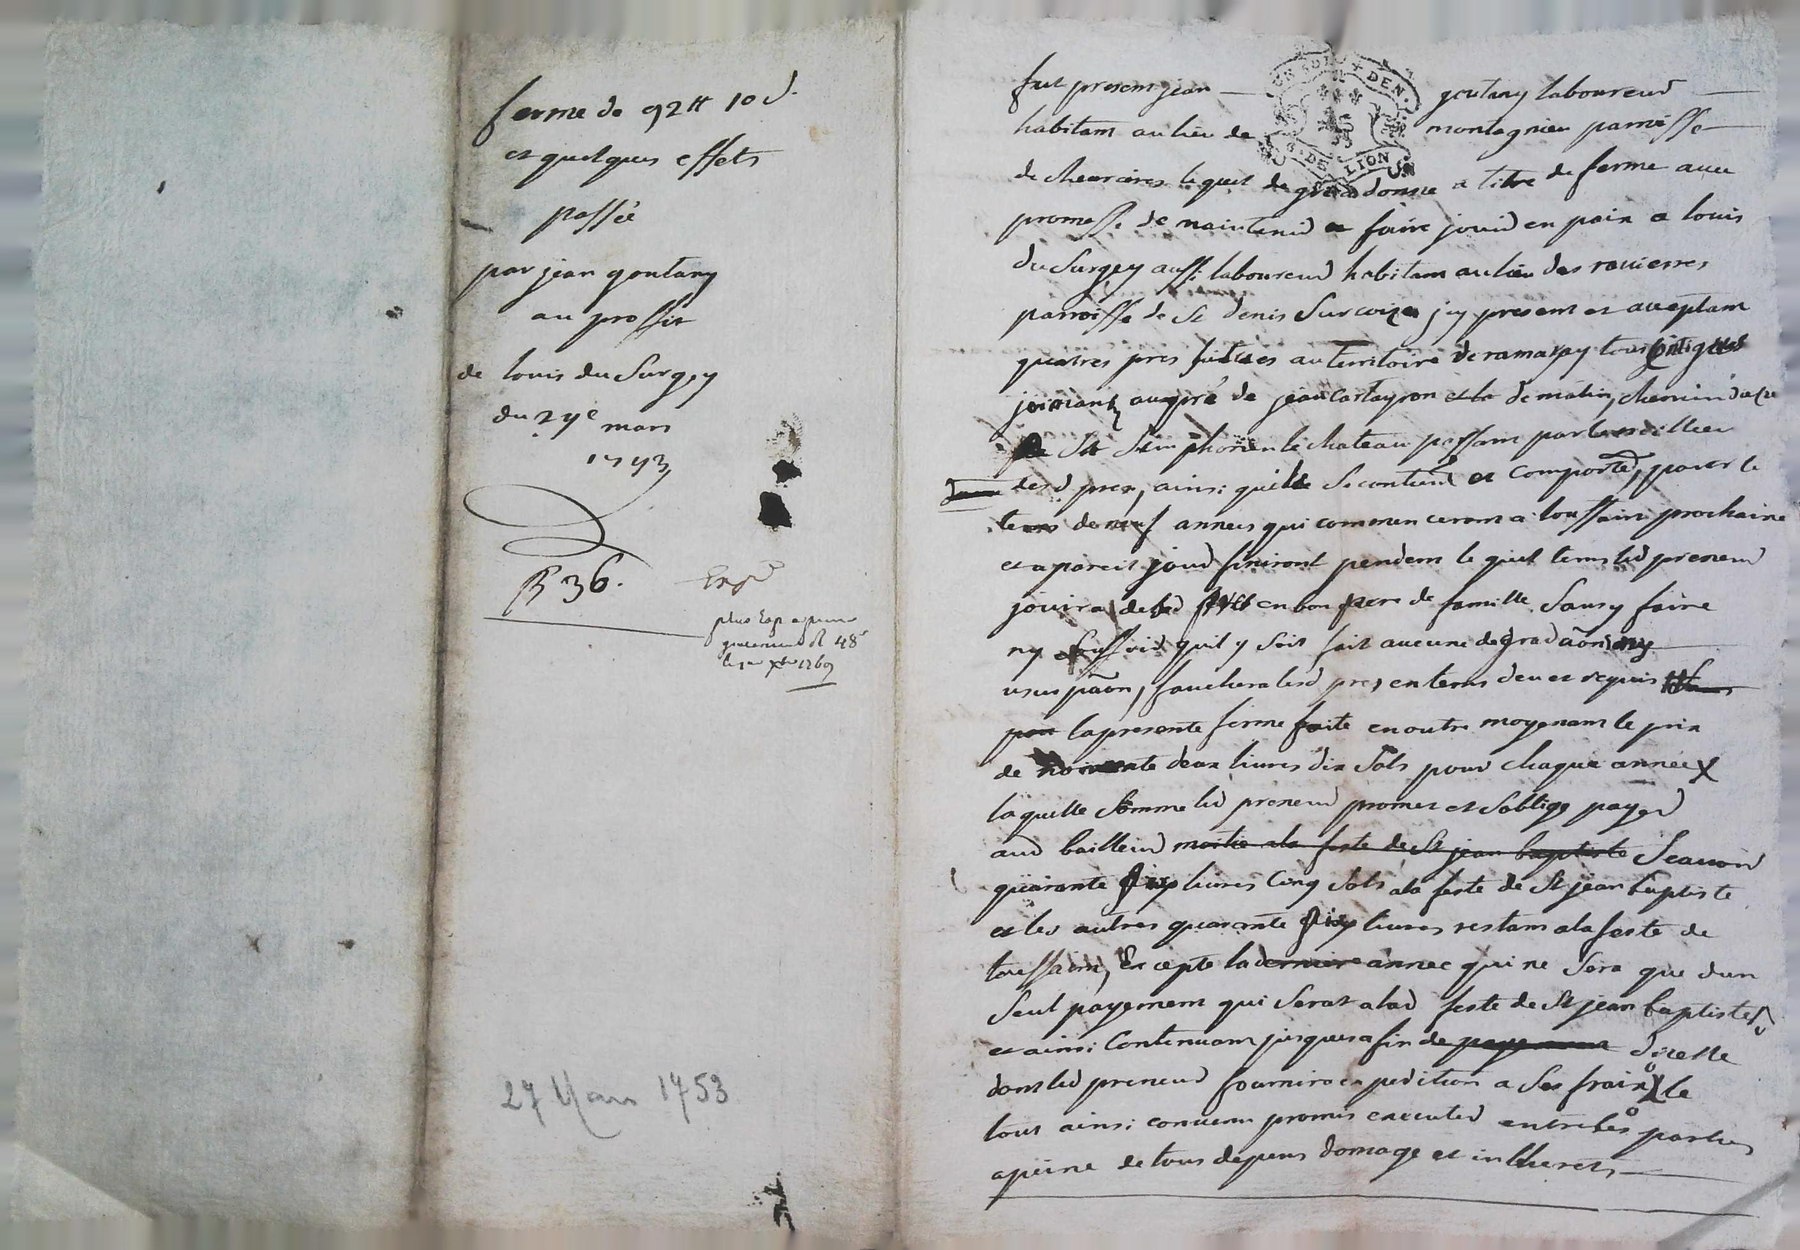 ferme de 92tt 10 d.
et quelques effets
passée
par jean goutany
au proffit
de louis du Surgey
du 27e mars
1753
R 36.
Exp
plus Exp a
48s
1769
27 Mars 1753
fut present jean goutany laboureur
UN SOL + DEN. G. DE LION
habitant au lieu de montagnieu parroisse
de chevrieres lequel de gré a donné a titre de ferme avec
promesse de maintenir et faire jouir en paix a louis
du Surgey aussi laboureur habitant au lieu des rouierres
parroisse de St denis Sur coize jcy present et acceptant
quatres pres situes au territoire de ramaxay tous contigues
joignants au pré de jean Cartayron et la de matin, chemin
de St Simphorien le chateau passant par le millieu
desd prez, ainsi quils Se contient et Comporte, pour le
tems de neuf années qui commenceront a toussaint prochaine
et a pareil jour finiront pendent le quel tems led preneur
jouira desd pres en bon pere de famille Sans y faire
ny Souffrir quil y Soit fait aucune degradaõn ny
usurpaõn, fauchera lesd prez en tems deu et requis
pour la presente ferme faite en outre moyenant le prix
de nonente deux livres dix Sols pour chaque année X
laquelle Somme led preneur promet et Soblige payer
aud bailleur moitié a la feste de St jean baptiste Scavoir
quarante Six livres Cinq Sols a la feste de St jean baptiste
et les autres quarante Six livres restant a la feste de
toussaint, Excepté la derniere année qui ne Sera que dun
Seul payement qui Serat a lad feste de St jean baptiste
et ainsi Contenuant jusques a fin de payement dicelle
dont led preneur fournira expedition a Ses fraix X le
tout ainsi convenu promis executer entre les parties
a peine de tous depens domage et intherets